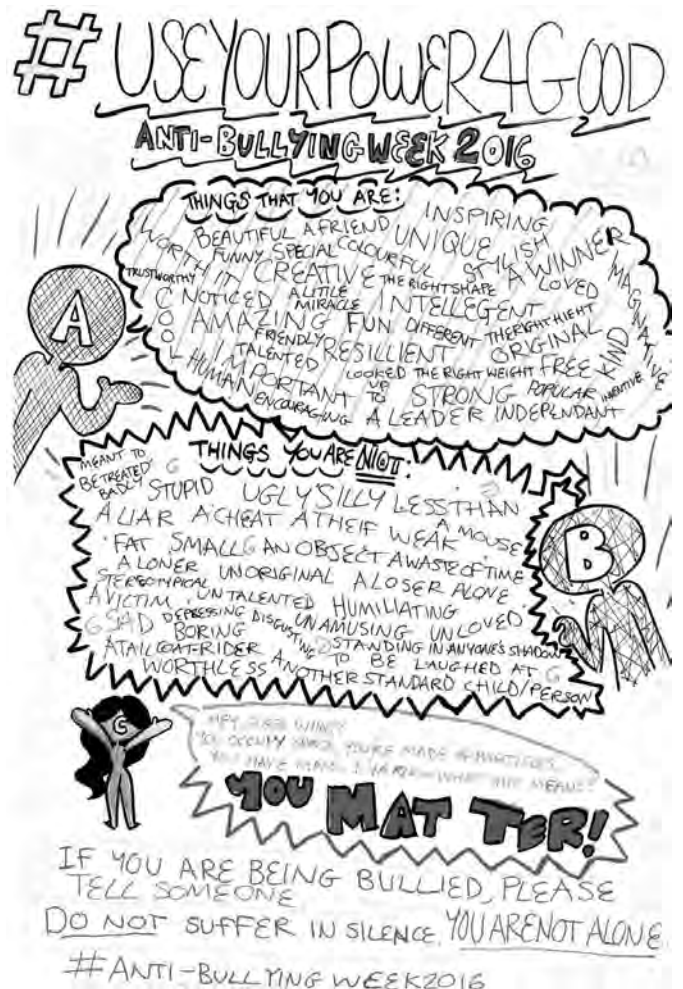 #USEYOURPOWER4GOOD
ANTI-BULLYING WEEK 2016
THINGS THAT YOU ARE:
INSPIRING
BEAUTIFUL A FRIEND UNIQUE STYLISH
WORTH IT FUNNY SPECIAL COLOURFUL A WINNER
TRUSTWORTHY CREATIVE THE RIGHT SHAPE LOVED
COOL NOTICED A LITTLE MIRACLE INTELLEGENT MAGINATIVE
AMAZING FUN DIFFERENT THE RIGHT HIEHT
FRIENDLY RESILLIENT ORIGINAL KIND
TALENTED LOOKED UP TO THE RIGHT WEIGHT FREE
IMPORTANT STRONG POPULAR INVENTIVE
HUMAN ENCOURAGING A LEADER INDEPENDANT
A
THINGS YOU ARE NOT:
MEANT TO BE TREATED BADLY G
STUPID UGLY SILLY LESS THAN
A LIAR A CHEAT A THEIF WEAK A MOUSE
FAT SMALL G AN OBJECT A WASTE OF TIME
A LONER UNORIGINAL A LOSER ALONE
STEREOTYPICAL
A VICTIM UNTALENTED HUMILIATING
G SAD DEPRESSING DISGUSTING UNAMUSING UNLOVED
BORING STANDING IN ANYONE'S SHADOW
A TAILCOAT-RIDER TO BE LAUGHED AT G
WORTHLESS ANOTHER STANDARD CHILD/PERSON
B
G
YOU OCCUPY SPACE, YOU'RE MADE OF PARTICLES
YOU HAVE MASS WHAT THIS MEANS?
YOU MAT TER!
IF YOU ARE BEING BULLIED, PLEASE
TELL SOMEONE
DO NOT SUFFER IN SILENCE. YOU ARE NOT ALONE.
#ANTI-BULLYING WEEK2016